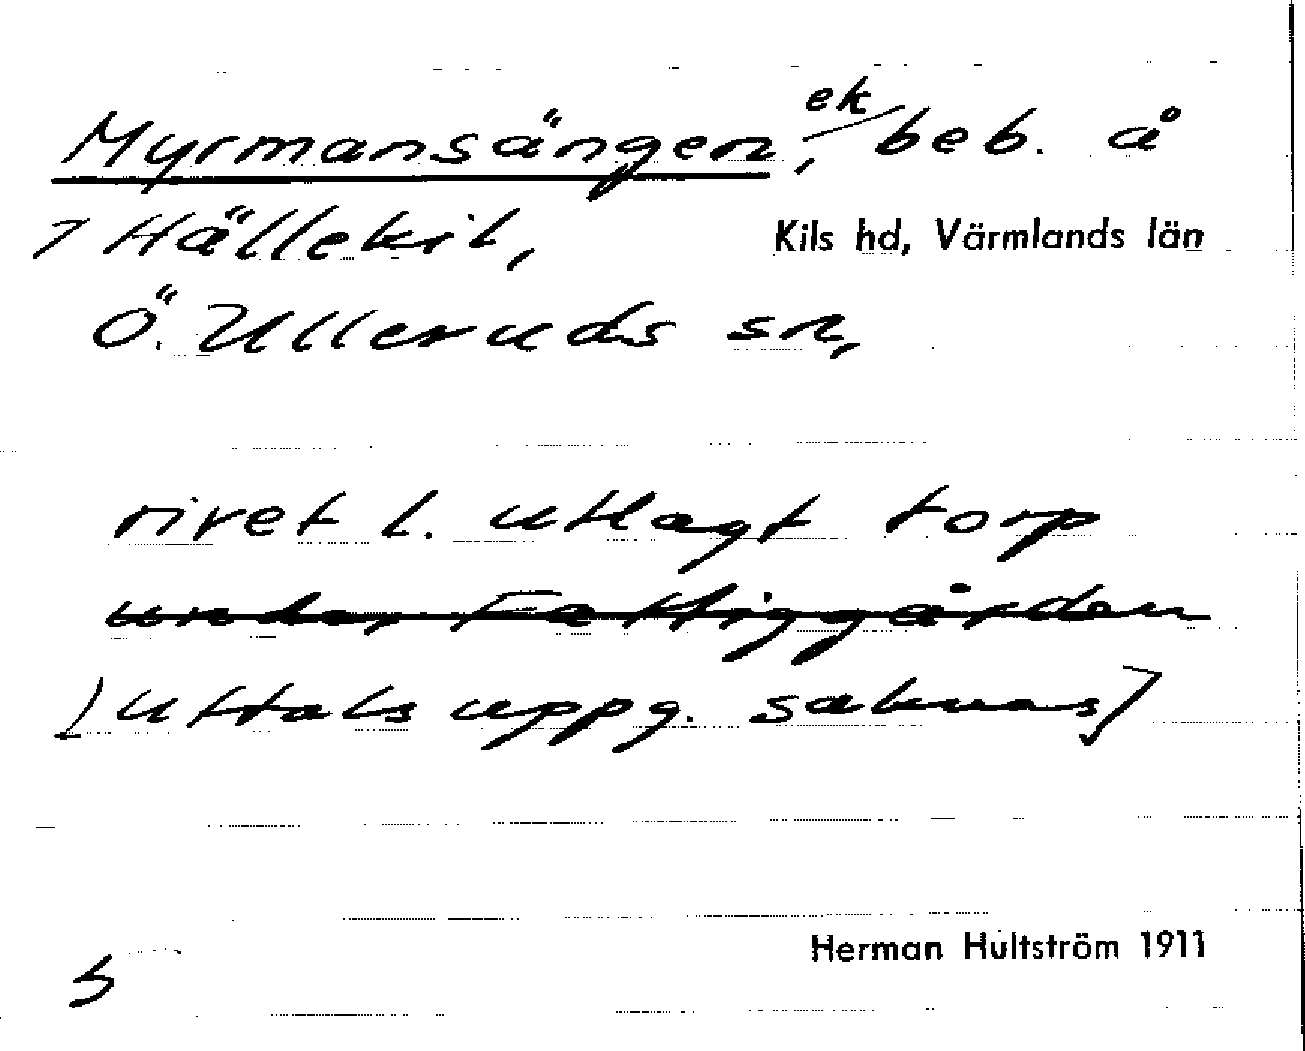 Myrmansängen, ek beb. å
7 Hällekil,
Kils hd, Värmlands län
Ö. Ulleruds sn,
rivet l. utlagt torp
under Fattiggården
[Uttalsuppg. saknas]
Herman Hultström 1911
5